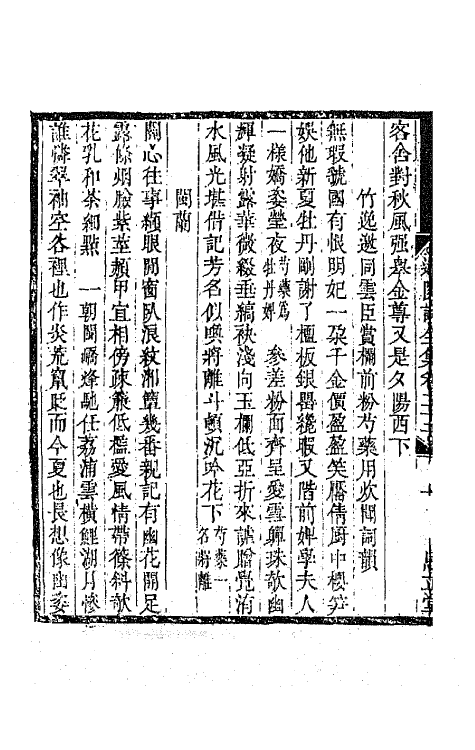 客舍對秋風强舉金尊又是夕陽西下
竹逸邀同雲臣賞欄前粉芍藥用炊聞詞韻
無瑕虢國有恨明妃一朶千金價盈盈笑靨倩厨中櫻笋
娛他新夏牡丹剛謝了檀板銀罌纔暇又階前婢學夫人
一様嬌姿瑩夜芍藥爲牡丹婢 參差粉面齊呈愛雲軃珠欹幽
輝凝射露華微綴垂縞袂淺向玉欄低亞折來謀贈覓洧
水風光堪借記芳名似喚將離斗頓沉吟花下芍藥一名將離
閩蘭
關心往事纈眼閒窗臥浪紋湘簟幾番親記有幽花開足
露條烟臉紫莖頳甲宜相傍疎簾低檻愛風情帶篠斜欹
花乳和茶細點 一朝閩嶠烽馳任荔浦雲橫鯉湖月慘
誰禱翠袖空谷裡也作炎荒竄貶而今夏也長想像幽姿